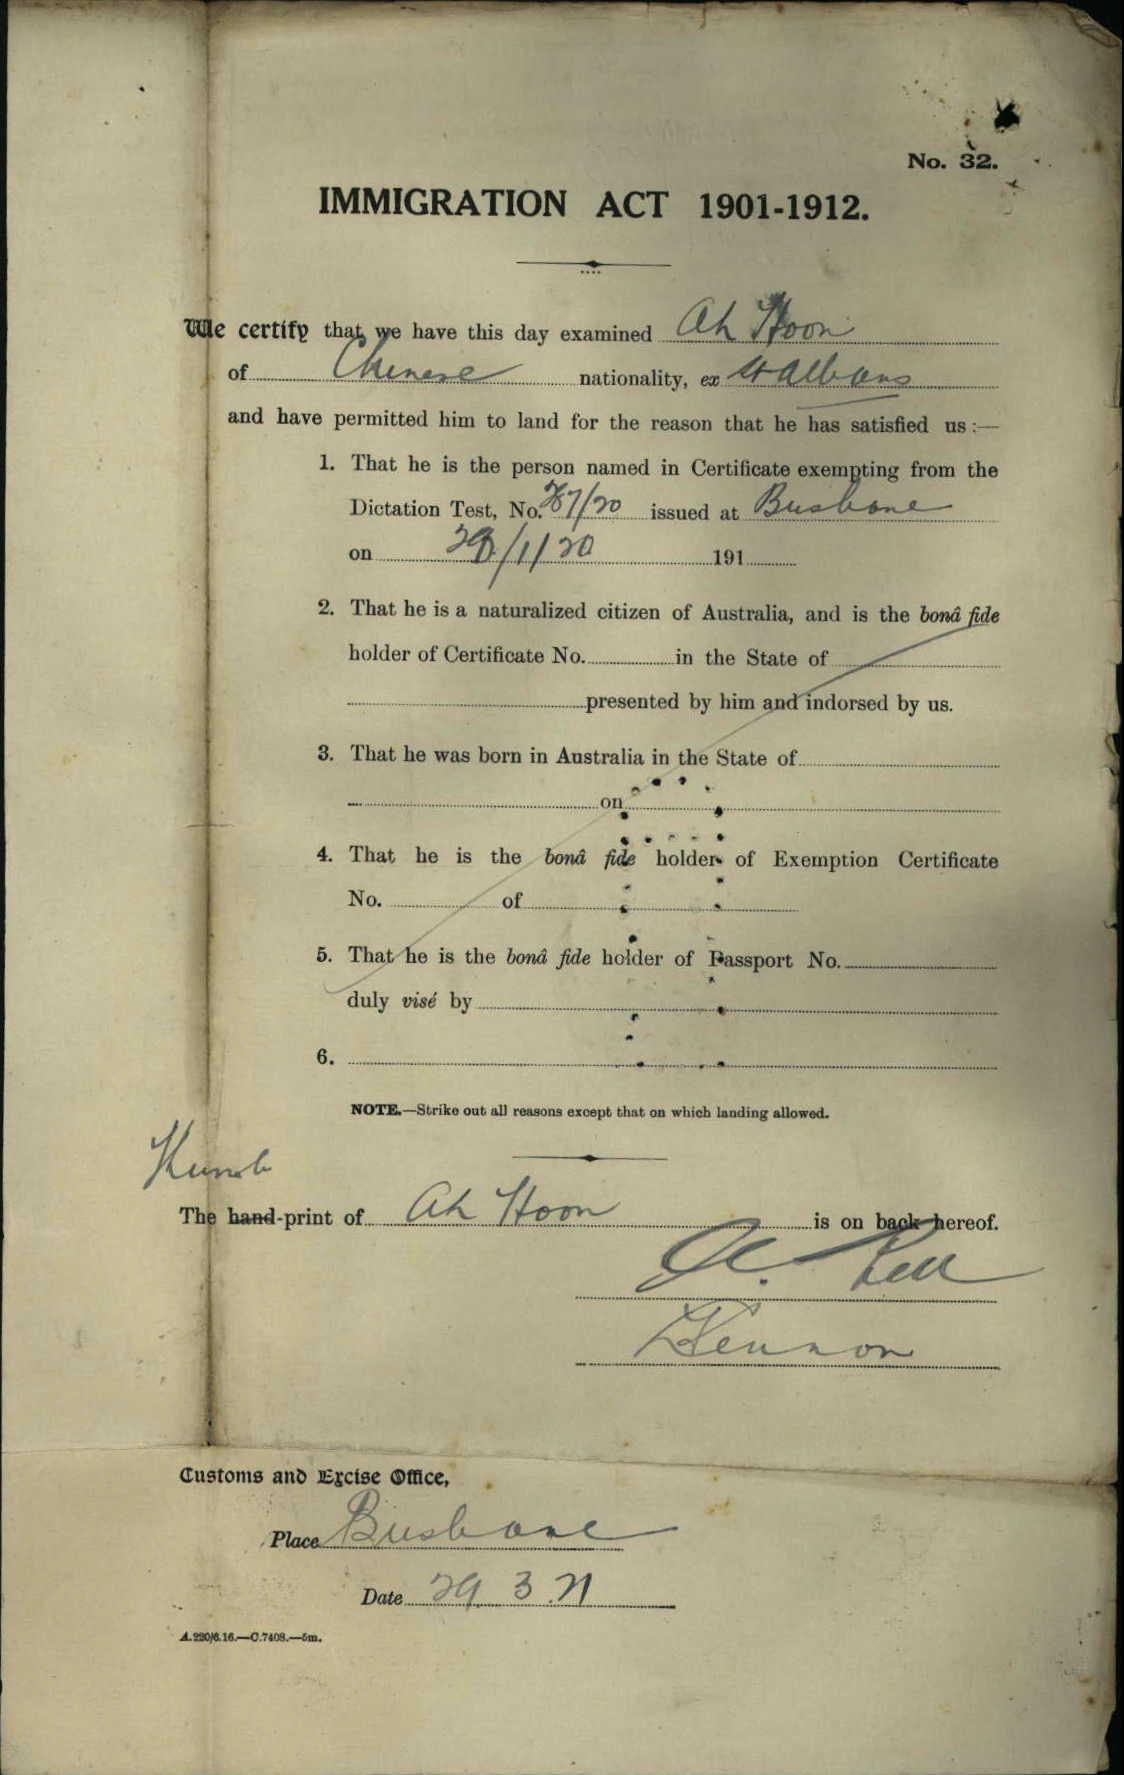 No. 32.
IMMIGRATION ACT 1901-1912.
We certify that we have this day examined Ah Hoon
of Chinese nationality, ex St Albans
and have permitted him to land for the reason that he has satisfied us :—
1. That he is the person named in Certificate exempting from the
Dictation Test, No. 87/20 issued at Brisbane
on /1/20 191
2. That he is a naturalized citizen of Australia, and is the bonâ fide
holder of Certificate No. in the State of
presented by him and indorsed by us.
3. That he was born in Australia in the State of
on
4. That he is the bonâ fide holder of Exemption Certificate
No. of
5. That he is the bonâ fide holder of Passport No.
duly visé by
6.
NOTE.—Strike out all reasons except that on which landing allowed.
Thumb
The hand-print of Ah Hoon is on back hereof.
Customs and Excise Office,
Place Brisbane
Date 29.3.21
A.220/6.16.—C.7408.—5m.